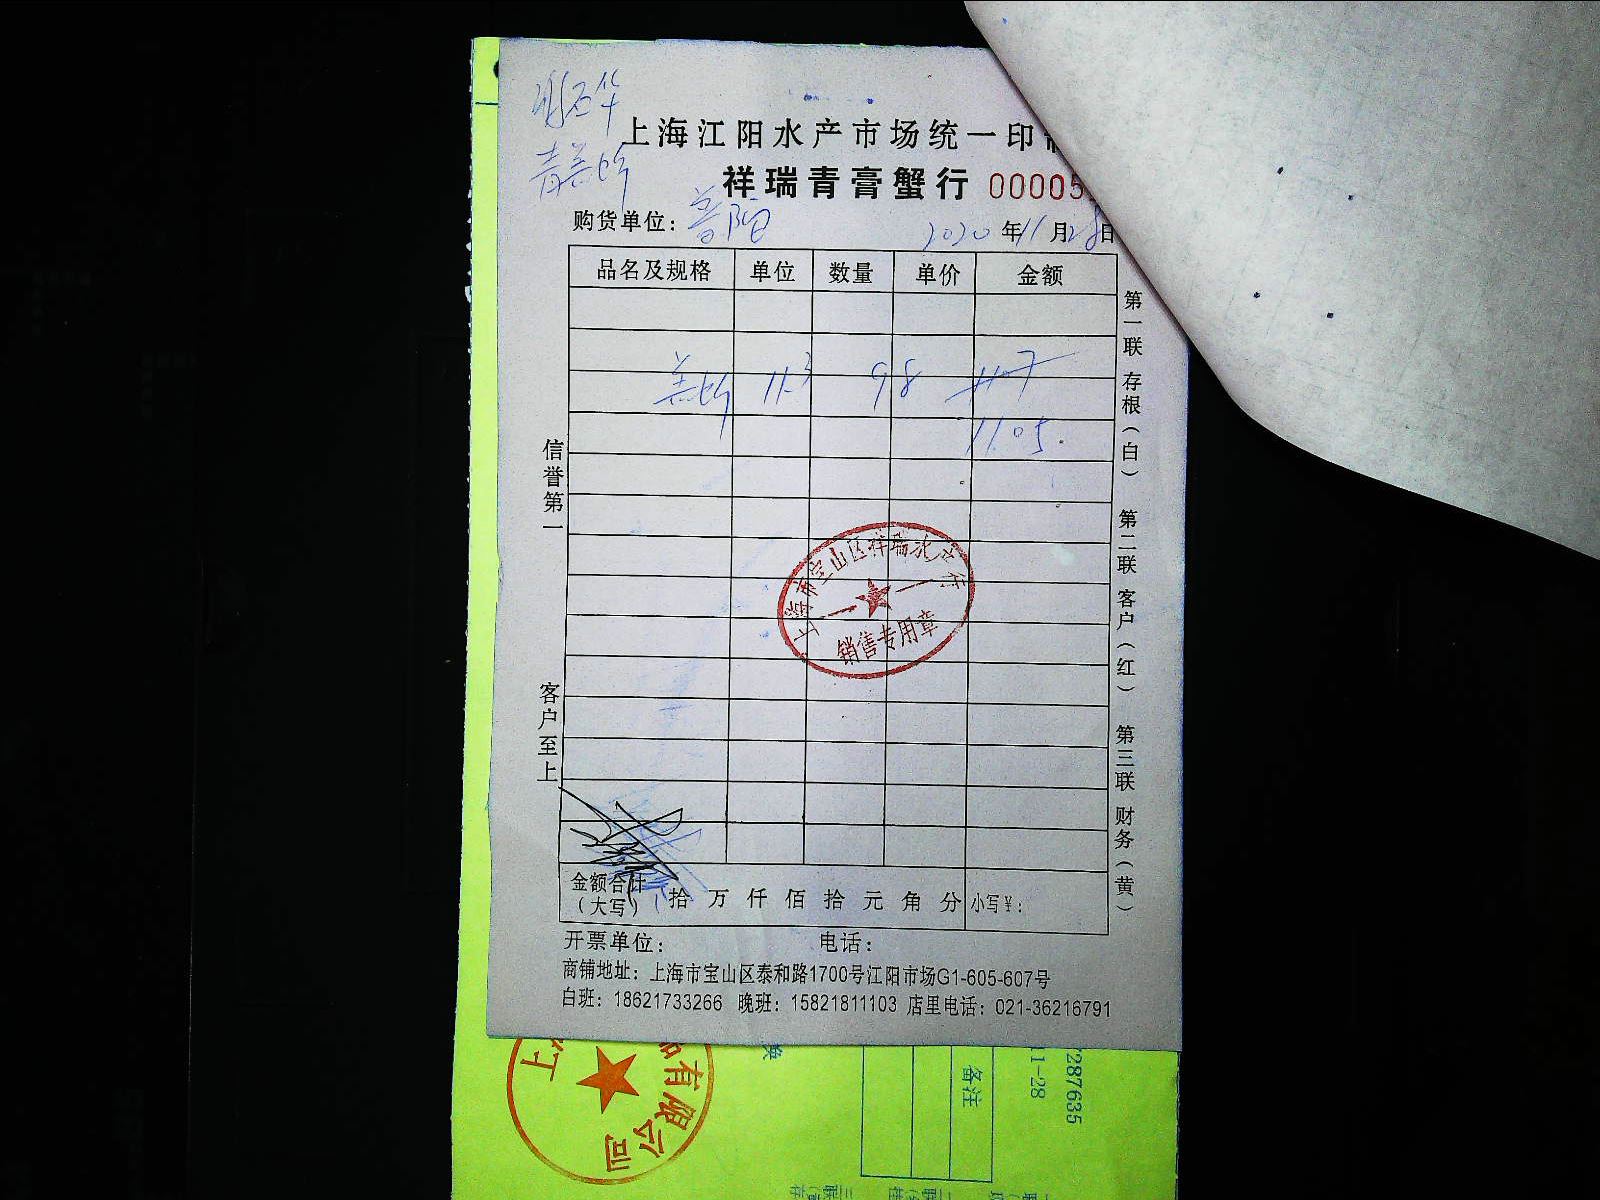 上海江阳水产市场统一印
祥瑞青膏蟹行 00005
购货单位：普陀 2020年11月28日
品名及规格 单位 数量 单价 金额
11.3 98 1107
1105.
信誉第一
客户至上
第一联 存根（白） 第二联 客户（红） 第三联 财务（黄）
上海市宝山区祥瑞水产行
销售专用章
金额合计（大写） 拾 万 仟 佰 拾 元 角 分 小写￥：
开票单位： 电话：
商铺地址：上海市宝山区泰和路1700号江阳市场G1-605-607号
白班：18621733266 晚班：15821811103 店里电话：021-36216791
上
品有限公司
换
备注
11-28
287635